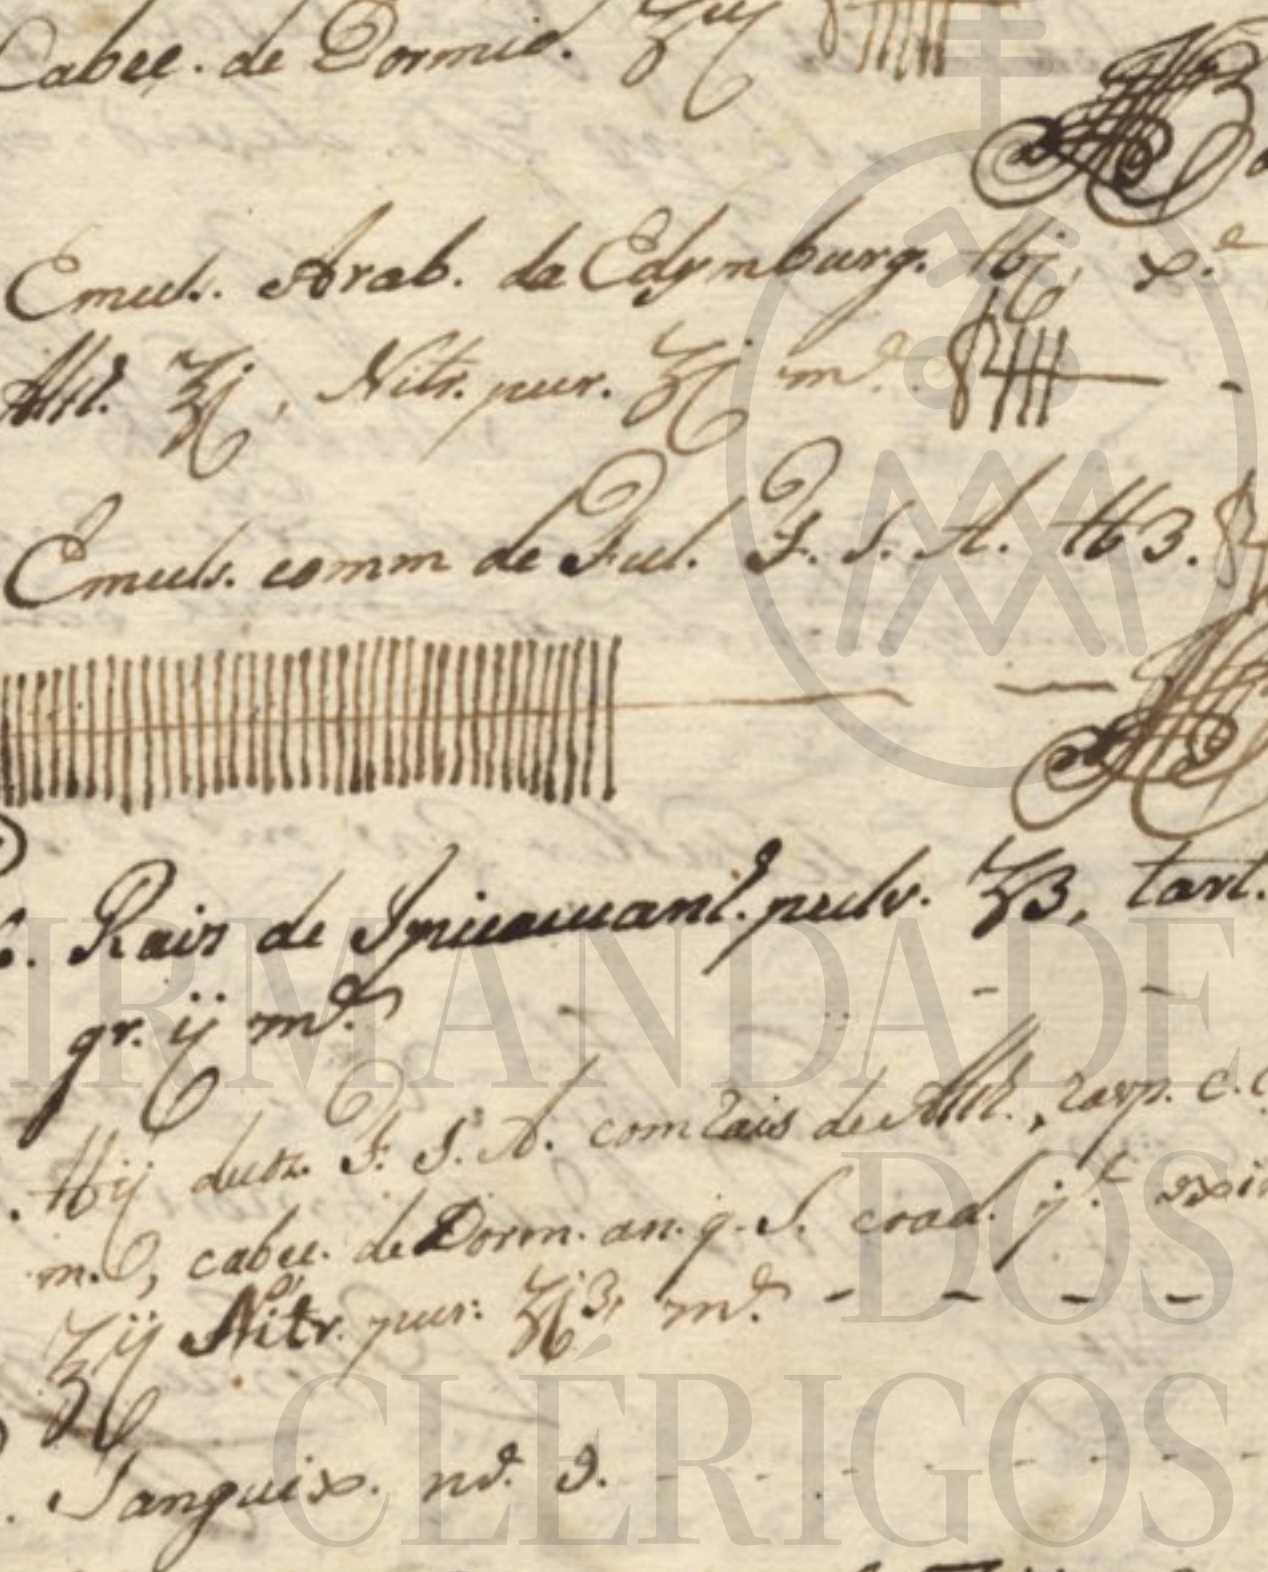 Cabec. de Dormid. ʒiij
Emuls. Arab. de Edymburg. ℔j, x.e
Alt. ʒj, Nitr. pur. ʒj m.e
Emuls. comm de Ful. F. S. A. ℔ß.
Rais de Ipicacuanh. pulv. ʒß, tart.
gr. ij m.e
℔ij F. S. A. com rais de Alth., rasp. C. C
m. , cabec. de Dorm. an. q. S. coad. ij
ʒij Nitr. pur. ʒjß, m.e
Sanguix. n.o 9.
IRMANDADE
DOS
CLÉRIGOS